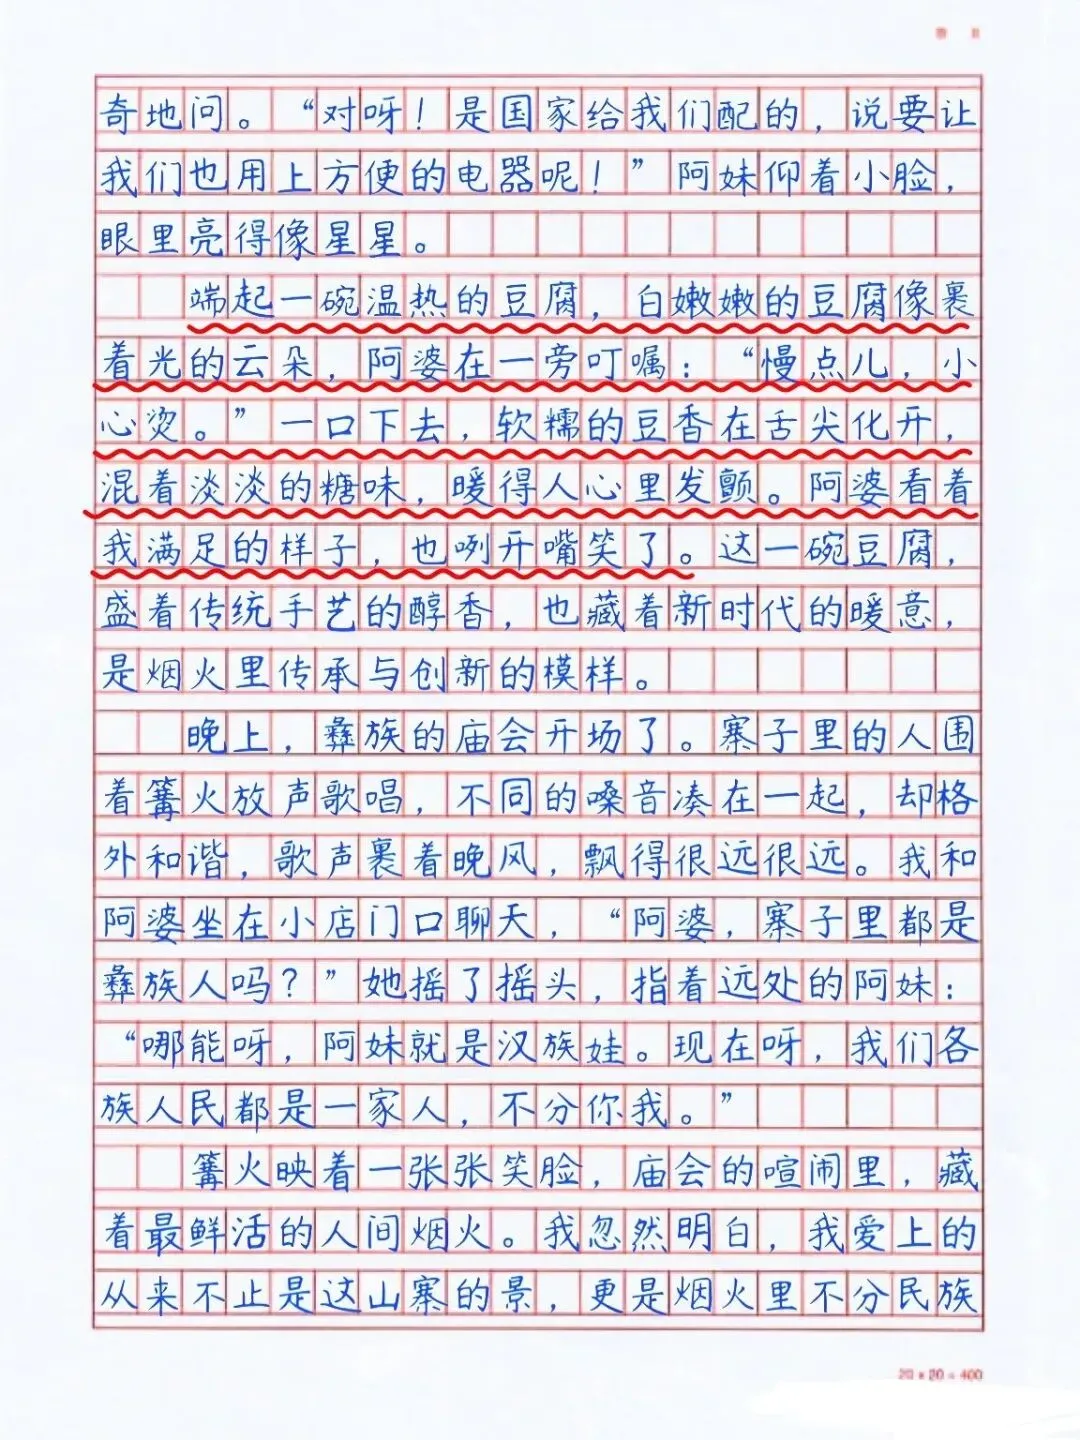 奇地问。“对呀！是国家给我们配的，说要让
我们也用上方便的电器呢！”阿妹仰着小脸，
眼里亮得像星星。
端起一碗温热的豆腐，白嫩嫩的豆腐像裹
着光的云朵，阿婆在一旁叮嘱：“慢点儿，小
心烫。”一口下去，软糯的豆香在舌尖化开，
混着淡淡的糖味，暖得人心里发颤。阿婆看着
我满足的样子，也咧开嘴笑了。这一碗豆腐，
盛着传统手艺的醇香，也藏着新时代的暖意，
是烟火里传承与创新的模样。
晚上，彝族的庙会开场了。寨子里的人围
着篝火放声歌唱，不同的嗓音凑在一起，却格
外和谐，歌声裹着晚风，飘得很远很远。我和
阿婆坐在小店门口聊天，“阿婆，寨子里都是
彝族人吗？”她摇了摇头，指着远处的阿妹：
“哪能呀，阿妹就是汉族娃。现在呀，我们各
族人民都是一家人，不分你我。”
篝火映着一张张笑脸，庙会的喧闹里，藏
着最鲜活的人间烟火。我忽然明白，我爱上的
从来不止是这山寨的景，更是烟火里不分民族
20×20=400